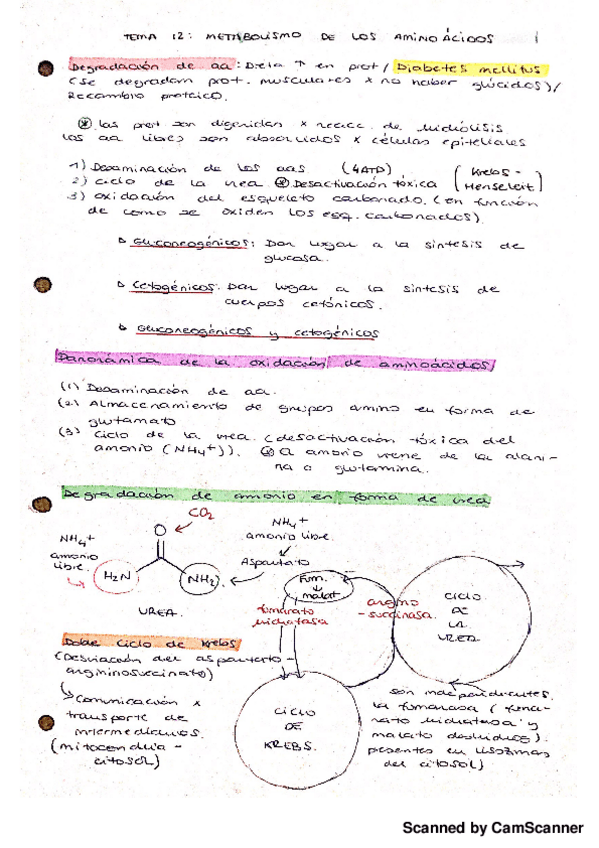 TEMA 12: METABOLISMO DE LOS AMINOÁCIDOS 1
Degradación de aa: Dieta ↑ en prot/ Diabetes mellitus
(se degradan prot. musculares x no haber glúcidos)/
Recambio proteico.
las prot son digeridas x reacc. de hidrólisis
los aa libres son absorbidos x células epiteliales
1) Desaminación de los aas (4ATP)
2) ciclo de la urea. Desactivación tóxica (Krebs-Henseleit)
3) oxidación del esqueleto carbonado. (en función
de como se oxiden los esq. carbonados).
Gluconeogénicos: Dan lugar a la síntesis de
glucosa.
Cetogénicos: Dan lugar a la síntesis de
cuerpos cetónicos.
Gluconeogénicos y cetogénicos
Panorámica de la oxidación de aminoácidos
(1) Desaminación de aa.
(2) Almacenamiento de grupos amino en forma de
glutamato
(3) Ciclo de la urea. (desactivación tóxica del
amonio (NH4+)). El amonio viene de la alani-
na o glutamina.
Degradación de amonio en forma de urea
CO2
NH4+
amonio
libre.
O
H2N
NH2
UREA.
NH4+
amonio libre.
Aspartato
Fum.
malat
fumarato
hidratasa
argino
-succinasa.
CICLO
DE
LA
UREA
Doble ciclo de Krebs
(Desviación del aspartato-
argininosuccinato)
Comunicación x
transporte de
intermediarios.
(mitocondria-
citosol)
CICLO
DE
KREBS.
son independientes.
la fumarasa (fuma-
rato hidratasa y
malato deshidrog).
presentes en isozimas
del citosol)
Scanned by CamScanner